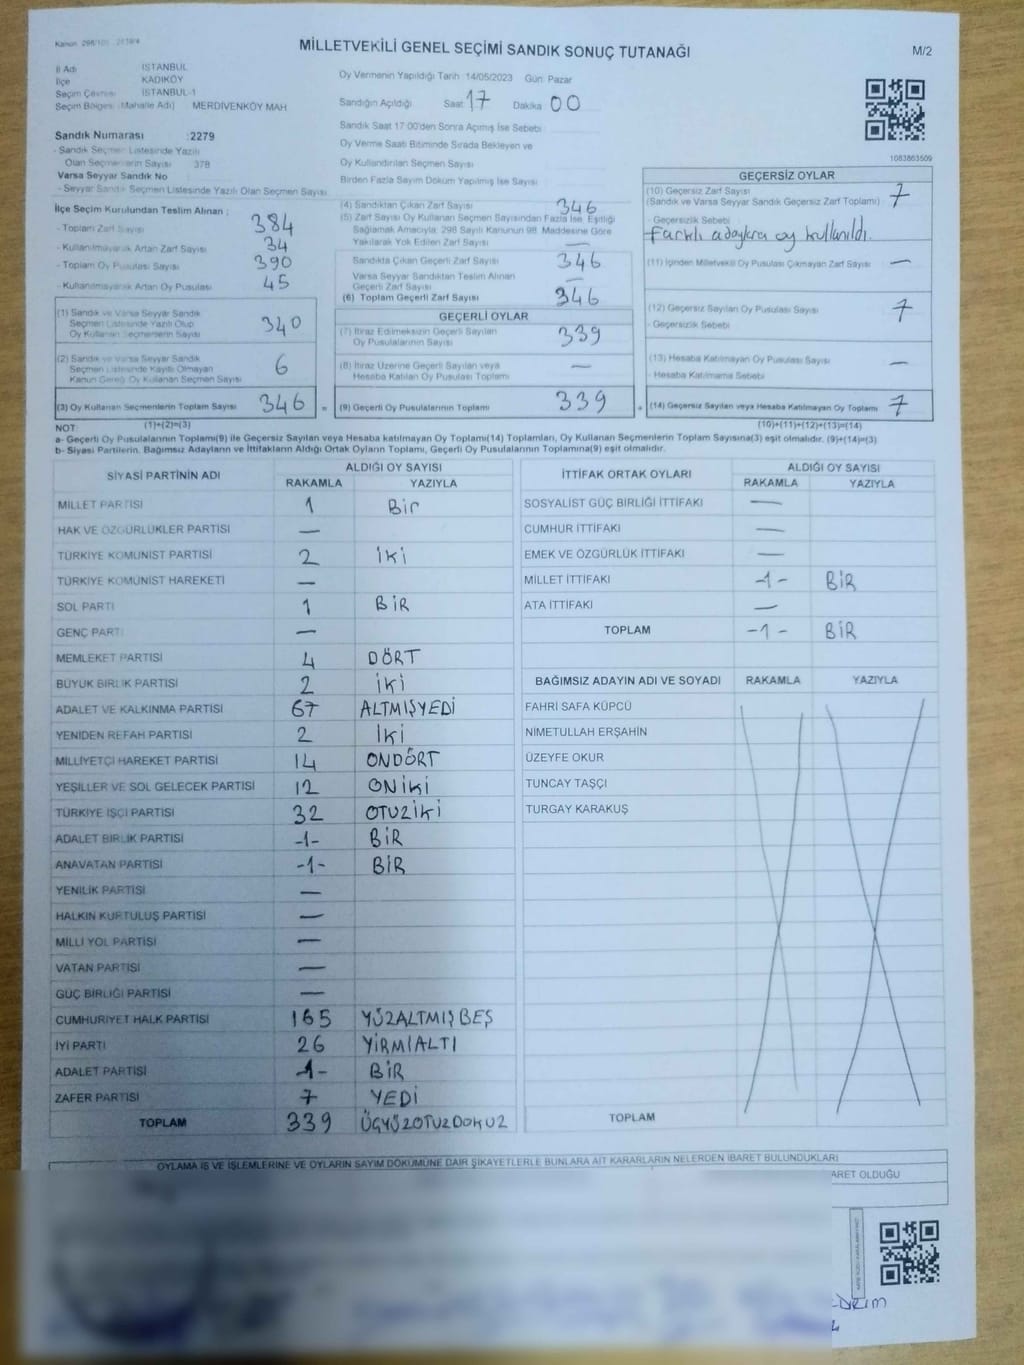 Kanun 298/105
MİLLETVEKİLİ GENEL SEÇİMİ SANDIK SONUÇ TUTANAĞI
M/2
İl Adı İSTANBUL
İlçe KADIKÖY
Seçim Çevresi İSTANBUL-1
Seçim Bölgesi (Mahalle Adı) MERDİVENKÖY MAH
Oy Vermenin Yapıldığı Tarih 14/05/2023 Gün: Pazar
Sandığın Açıldığı Saat 17 Dakika 00
Sandık Saat 17:00'den Sonra Açılmış İse Sebebi
Oy Verme Saati Bitiminde Sırada Bekleyen ve
Oy Kullandırılan Seçmen Sayısı
Birden Fazla Sayım Döküm Yapılmış İse Sayısı
1083863509
Sandık Numarası : 2279
- Sandık Seçmen Listesinde Yazılı
Olan Seçmenlerin Sayısı 378
Varsa Seyyar Sandık No
- Seyyar Sandık Seçmen Listesinde Yazılı Olan Seçmen Sayısı
İlçe Seçim Kurulundan Teslim Alınan ;
- Toplam Zarf Sayısı 384
- Kullanılmayarak Artan Zarf Sayısı 34
- Toplam Oy Pusulası Sayısı 390
- Kullanılmayarak Artan Oy Pusulası 45
(1) Sandık ve Varsa Seyyar Sandık
Seçmen Listesinde Yazılı Olup
Oy Kullanan Seçmenlerin Sayısı 340
(2) Sandık ve Varsa Seyyar Sandık
Seçmen Listesinde Kayıtlı Olmayan
Kanun Gereği Oy Kullanan Seçmen Sayısı 6
(3) Oy Kullanan Seçmenlerin Toplam Sayısı 346 =
(1)+(2)=(3)
(4) Sandıktan Çıkan Zarf Sayısı 346
(5) Zarf Sayısı Oy Kullanan Seçmen Sayısından Fazla İse, Eşitliği
Sağlamak Amacıyla; 298 Sayılı Kanunun 98. Maddesine Göre
Yakılarak Yok Edilen Zarf Sayısı —
Sandıkta Çıkan Geçerli Zarf Sayısı 346
Varsa Seyyar Sandıktan Teslim Alınan
Geçerli Zarf Sayısı —
(6) Toplam Geçerli Zarf Sayısı 346
GEÇERLİ OYLAR
(7) İtiraz Edilmeksizin Geçerli Sayılan
Oy Pusulalarının Sayısı 339
(8) İtiraz Üzerine Geçerli Sayılan veya
Hesaba Katılan Oy Pusulası Toplamı —
(9) Geçerli Oy Pusulalarının Toplamı 339 +
GEÇERSİZ OYLAR
(10) Geçersiz Zarf Sayısı 7
(Sandık ve Varsa Seyyar Sandık Geçersiz Zarf Toplamı)
- Geçersizlik Sebebi
farklı adaylara oy kullanıldı.
(11) İçinden Milletvekili Oy Pusulası Çıkmayan Zarf Sayısı —
(12) Geçersiz Sayılan Oy Pusulası Sayısı 7
- Geçersizlik Sebebi
(13) Hesaba Katılmayan Oy Pusulası Sayısı —
- Hesaba Katılmama Sebebi
(14) Geçersiz Sayılan veya Hesaba Katılmayan Oy Toplamı 7
(10)+(11)+(12)+(13)=(14)
NOT:
a- Geçerli Oy Pusulalarının Toplamı(9) ile Geçersiz Sayılan veya Hesaba katılmayan Oy Toplamı(14) Toplamları, Oy Kullanan Seçmenlerin Toplam Sayısına(3) eşit olmalıdır. (9)+(14)=(3)
b- Siyasi Partilerin, Bağımsız Adayların ve İttifakların Aldığı Ortak Oyların Toplamı, Geçerli Oy Pusulalarının Toplamına(9) eşit olmalıdır.
SİYASİ PARTİNİN ADI ALDIĞI OY SAYISI
RAKAMLA YAZIYLA
MİLLET PARTİSİ 1 Bir
HAK VE ÖZGÜRLÜKLER PARTİSİ —
TÜRKİYE KOMÜNİST PARTİSİ 2 İKİ
TÜRKİYE KOMÜNİST HAREKETİ —
SOL PARTİ 1 BİR
GENÇ PARTİ —
MEMLEKET PARTİSİ 4 DÖRT
BÜYÜK BİRLİK PARTİSİ 2 İKİ
ADALET VE KALKINMA PARTİSİ 67 ALTMIŞYEDİ
YENİDEN REFAH PARTİSİ 2 İKİ
MİLLİYETÇİ HAREKET PARTİSİ 14 ONDÖRT
YEŞİLLER VE SOL GELECEK PARTİSİ 12 ONİKİ
TÜRKİYE İŞÇİ PARTİSİ 32 OTUZİKİ
ADALET BİRLİK PARTİSİ -1- BİR
ANAVATAN PARTİSİ -1- BİR
YENİLİK PARTİSİ —
HALKIN KURTULUŞ PARTİSİ —
MİLLİ YOL PARTİSİ —
VATAN PARTİSİ —
GÜÇ BİRLİĞİ PARTİSİ —
CUMHURİYET HALK PARTİSİ 165 YÜZALTMIŞBEŞ
İYİ PARTİ 26 YİRMİALTI
ADALET PARTİSİ -1- BİR
ZAFER PARTİSİ 7 YEDİ
TOPLAM 339 ÜÇYÜZOTUZDOKUZ
İTTİFAK ORTAK OYLARI ALDIĞI OY SAYISI
RAKAMLA YAZIYLA
SOSYALİST GÜÇ BİRLİĞİ İTTİFAKI —
CUMHUR İTTİFAKI —
EMEK VE ÖZGÜRLÜK İTTİFAKI —
MİLLET İTTİFAKI -1- BİR
ATA İTTİFAKI —
TOPLAM -1- BİR
BAĞIMSIZ ADAYIN ADI VE SOYADI RAKAMLA YAZIYLA
FAHRİ SAFA KÜPCÜ
NİMETULLAH ERŞAHİN
ÜZEYFE OKUR
TUNCAY TAŞÇI
TURGAY KARAKUŞ
TOPLAM
OYLAMA İŞ VE İŞLEMLERİNE VE OYLARIN SAYIM DÖKÜMÜNE DAİR ŞİKAYETLERLE BUNLARA AİT KARARLARIN NELERDEN İBARET BULUNDUKLARI
ARET OLDUĞU